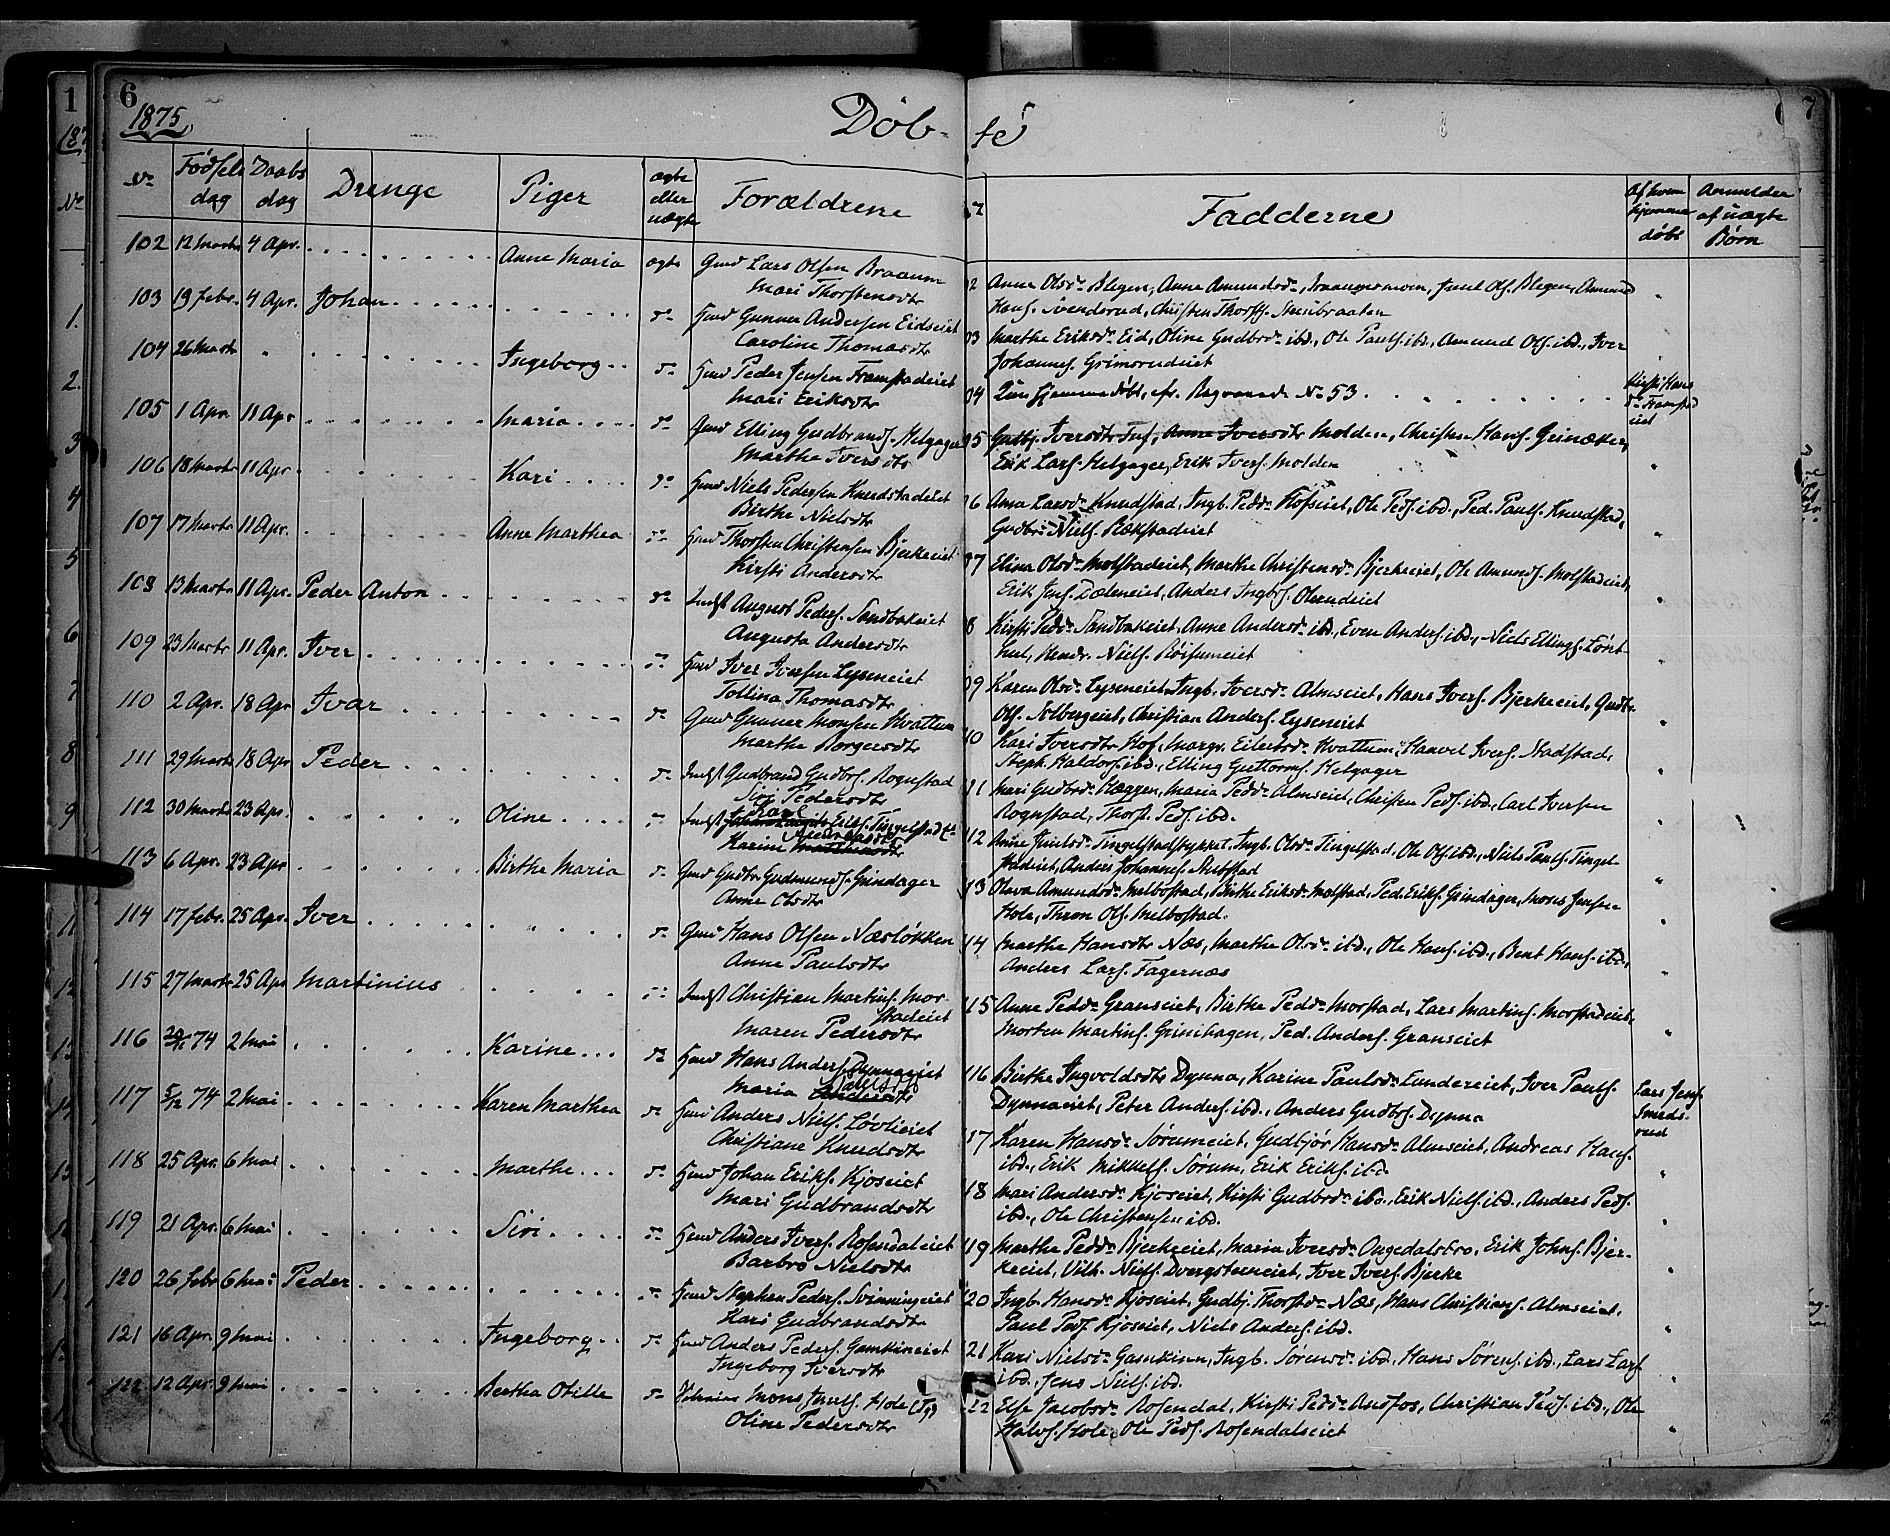 6
1875
Døb-te
No
Fødsels dag
Daabs dag
Drenge
Piger
ægte eller uægte
Forældrene
Fadderne
af hvem hjemme døbt
Anmelder af uægte Børn
102 12 Marts 4 Apr. Anne Maria ægte Gmd Lars Olsen Braaum
Mari Thorstensdtr
Anne Olsd. Blegen, Anne Amundsd.
103 19 febr. 4 Apr. Johan Hmd Gunner Andersen Eidseiet
Caroline Thomasdtr
Marthe Eriksd. Eid, Oline Gudbrd. ibd., Ole Pauls. ibd., Amund Ols. ibd., Iver
Johannes. Grimsrudeiet
104 26 Marts Ingeborg Hmd Peder Jensen Framstadeiet
Mari Eriksdtr
Kun hjemmedøbt, cfr. No 53
Kirsti Hans
105 1 Apr. 11 Apr. Maria Gmd Elling Gudbrands. Helgager
Marthe Iversdtr
Molden, Christen Hans. Grinaker,
Erik Lars. Helgager, Erik Ivers. Molden
106 18 Marts 11 Apr. Kari Hmd Niels Pedersen Knudstadeiet
Birthe Nielsdtr
Anna Larsd. Knudstad, Ingb. Pedd. Hofseiet, Ole Peds. ibd., Ped. Pauls. Knudstad,
107 17 Marts 11 Apr. Anne Marthea Hmd Thorsten Christensen Bjerkeeiet
Kirsti Andersdtr
Elina Olsd. Molstadeiet, Marthe Christensd. Bjerkeeiet, Ole Amunds. Molstadeiet,
108 13 Marts 11 Apr. Peder Anton Indst August Peders. Sandbakeiet
Augusta Andersdtr
Kirsti Pedd. Sandbakeiet, Anne Andersd. ibd., Even Anders. ibd., Niels Ellings.
109 23 Marts 11 Apr. Iver Hmd Iver Iversen Lyseneiet
Tollina Thomasdtr
Karen Olsd. Lyseneiet, Ingb. Iversd. Almseiet, Hans Ivers. Bjerkeeiet, Gudbr.
Ols. Solbergeiet, Christian Anders. Lyseneiet
110 2 Apr. 18 Apr. Ivar Gmd Gunner Monsen Hvattum
Marthe Borgersdtr
Kari Iversdtr Hof, Margr. Eilertsd. Hvattum,
ibd., Elling Guttorms. Helgager
111 29 Marts 18 Apr. Peder Indst Gudbrand Gudbrs. Rognstad
Siri Pedersdtr
Mari Gudbrd. Hæggen, Maria Pedd. Almseiet, Christen Peds. ibd., Carl Iversen
Rognstad, Thorst. Peds. ibd.
112 30 Marts 23 Apr. Oline Indst Eriks. Tingelstad
Karine
Tingelstadstykket, Ingb. Olsd. Tingelstad, Ole Ols. ibd., Niels Pauls. Tingel-
stadeiet, Anders Johannes.
113 6 Apr. 23 Apr. Birthe Maria Gmd Gudbr. Gudmunds. Grindager
Anne Olsdtr
Olava Amundsd. Melbostad, Birthe Eriksd. Molstad, Ped. Eriks. Grindager, Mons Jensen
Hole, Thron Ols. Melbostad.
114 17 febr. 25 Apr. Iver Gmd Hans Olsen Næsløkken
Anne Paulsdtr
Marthe Hansdtr Næs, Marthe Olsd. ibd., Ole Hans. ibd., Bent Hans. ibd.,
Anders Lars. Fagernæs
115 27 Marts 25 Apr Martinius Indst Christian Martins. Mor-
stadeiet
Maren Pedersdtr
Anne Pedd. Granseiet, Birthe Pedd. Morstad, Lars Martins. Morstadeiet,
Morten Martins. Grinihagen, Ped. Anders. Granseiet
116 74 2 Mai Karine Hmd Hans Anders. Dynnaeiet
Maria
Birthe Ingvoldsdtr Dynna, Karine Paulsd. Lundereiet, Iver Pauls.
Dynnaeiet, Peter Anders. ibd., Anders Gudbrs. Dynna
Lars Jens.
Smeds-
rud
117 5/12 74 2 Mai Karen Marthea Hmd Anders Niels. Løvlieiet
Christiane Knudsdtr
Karen Hansd. Sørumeiet, Gudbjør Hansd. Almseiet, Andreas Hans.
ibd., Erik Mikkels. Sørum, Erik Eriks. ibd.
118 25 Apr. 6 Mai Marthe Hmd Johan Eriks. Kjoseiet
Mari Gudbrandsdtr
Mari Andersd. Kjoseiet, Kirsti Gudbrd. ibd., Erik Niels. ibd., Anders Peds.
ibd., Ole Christensen ibd.
119 21 Apr. 6 Mai Siri Hmd Anders Ivers. Rosendaleiet
Barbro Nielsdtr
Marthe Pedd. Bjerkeeiet, Maria Iversd. Ongedalsbro, Erik Johns. Bjer-
keeiet, Vilh. Niels. Dvergsteneiet, Iver Ivers. Bjerke
120 26 febr 6 Mai Peder Hmd Stephen Peders. Svinningeiet
Kari Gudbrandsdtr
Ingb. Hansd. Kjoseiet, Gudbj. Thorstd. Næs, Hans Christians. Almseiet,
Paul Peds. Kjoseiet, Niels Anders. ibd.
121 16 Apr. 9 Mai Ingeborg Hmd Anders Peders. Gamkineiet
Ingeborg Iversdtr
Kari Nielsd. Gamkinn, Ingb. Sørensd. ibd., Hans Sørens. ibd., Lars Lars.
ibd., Jens Niels. ibd.
122 12 Apr. 9 Mai Bertha Otilie Mons Jenses. Hole
Oline Pedersdtr
Else Jacobsd. Rosendal, Kirsti Pedd. Andfos, Christian Peds. ibd., Ole
Halvs. Hole, Ole Peds. Rosendalseiet